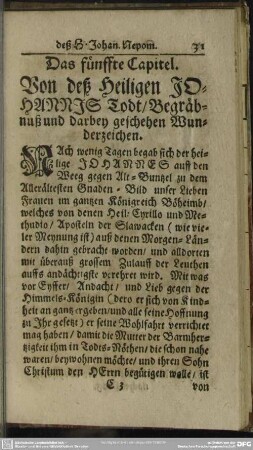 deß S. Johan. Nepom. 31
Das fünffte Capitel.
Von deß Heiligen JO-
HANNIS Todt/Begräb-
nuß und darbey geschehen Wun-
derzeichen.
NAch wenig Tagen begab sich der hei-
lige JOHANNES auff den
Weeg gegen Alt-Buntzel zu dem
Allerältesten Gnaden-Bild unser Lieben
Frauen im gantzen Königreich Böheimb/
welches von denen Heil: Cyrillo und Me-
thudio/ Aposteln der Slawacken (wie vie-
ler Meynung ist) auß denen Morgen-Län-
dern dahin gebracht worden/ und alldorten
mit überauß grossem Zulauff der Leuthen
auffs andächtigste verehret wird. Mit was
vor Eyffer/ Andacht/ und Lieb gegen der
Himmels-Königin (dero er sich von Kind-
heit an gantz ergeben/und alle seine Hoffnung
zu Ihr gesetzt) er seine Wohlfahrt verrichtet
mag haben/ damit die Mutter der Barmher-
tzigkeit ihm in Todts-Nöthen/ die schon nahe
waren/ beywohnen möchte/ und ihren Sohn
Christum den HErrn begütigen wolle/ ist
C 3 von